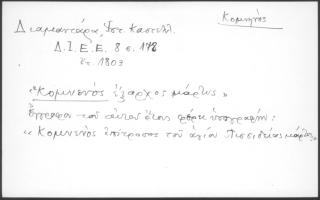 Κομνηνός
Διαμαντάρα, Ιστ. Καστελλ.
Δ.Ι.Ε.Ε. 8 σ. 178
ἔτ. 1803
«Κομνενός ἔξαρχος μάρτυς»
Ἔγγραφον τοῦ αὐτοῦ ἔτους φέρει ὑπογραφήν:
«Κομνενός ἐπίτροπος τοῦ ἁγίου Πισιδείας μάρτυς»